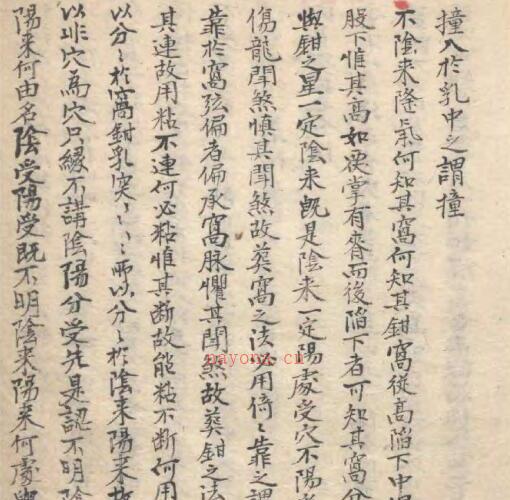 撞入於乳中之謂撞
不陰来降氣何知其窩何知其鉗窩從髙陷下中
股下惟其髙如要掌有脊而後陷下者可知其窩分
與鉗之星一定陰来旣是陰来一定陽處受穴不陽
傷龍聞煞慎其聞煞故葬窩之法必用倚〻靠之謂
靠於窩弦偏者偏承窩脉懼其聞煞故葬鉗之法
其連故用粘不連何必粘惟其断故能粘不断何用
以分〻於窩鉗乳突〻〻〻所以分〻於陰来陽来
以非穴為穴只緣不講陰陽分受先是認不明陰
陽来何由名陰受陽受既不明陰来陽来何處
nayona.cn